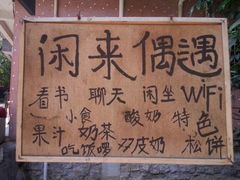 闲来偶遇
看书 聊天 闲坐 WiFi
小食 酸奶 特色
果汁 奶茶
吃饭啰 双皮奶 松饼